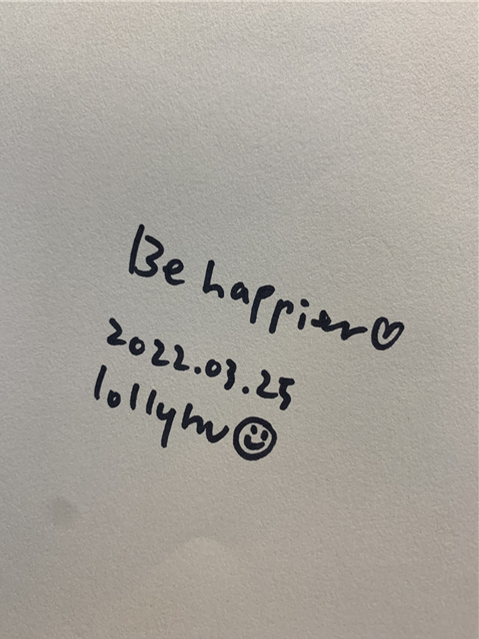 Be happier♡
2022.03.25
lollym☺